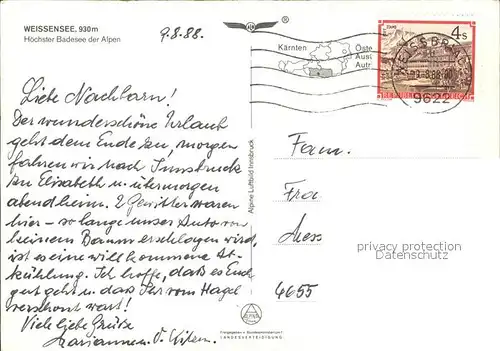 WEISSENSEE, 930m
Höchster Badesee der Alpen
9.8.88.
®
Kärnten
Öste
Aust
Autr
4s
WEISSBRIACH
9622
Liebe Nachbarn!
Der wunderschöne Urlaub
geht dem Ende zu, morgen
fahren wir nach Innsbruck
zu Elisabeth u. übermorgen
abend heim. 2 Gewitter waren
hier – so lange unser Auto von
keinem Baum erschlagen wird,
ist es eine willkommene Ab-
kühlung. Ich hoffe, dass es Euch
gut geht u. dass Ihr vom Hagel
verschont wart!
Viele liebe Grüsse
Alpine Luftbild Innsbruck
Fam.
4655
privacy protection
www.ansichtskarten-center.de
ALPINE
LANDESVERTEIDIGUNG